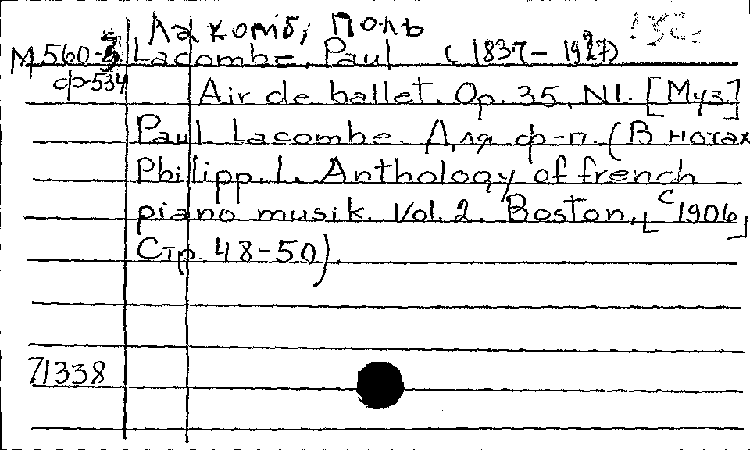 Лакомб, Поль
М 560-3 Lacombe, Paul (1837-1927)
ф-534
Air de ballet. Op. 35, N1. [Муз.]
Paul Lacombe. Для ф-п. (В нотах
Philipp. I. Anthology of french
piano musik. Vol. 2. Boston, [c 1906]
Стр. 48-50).
71338